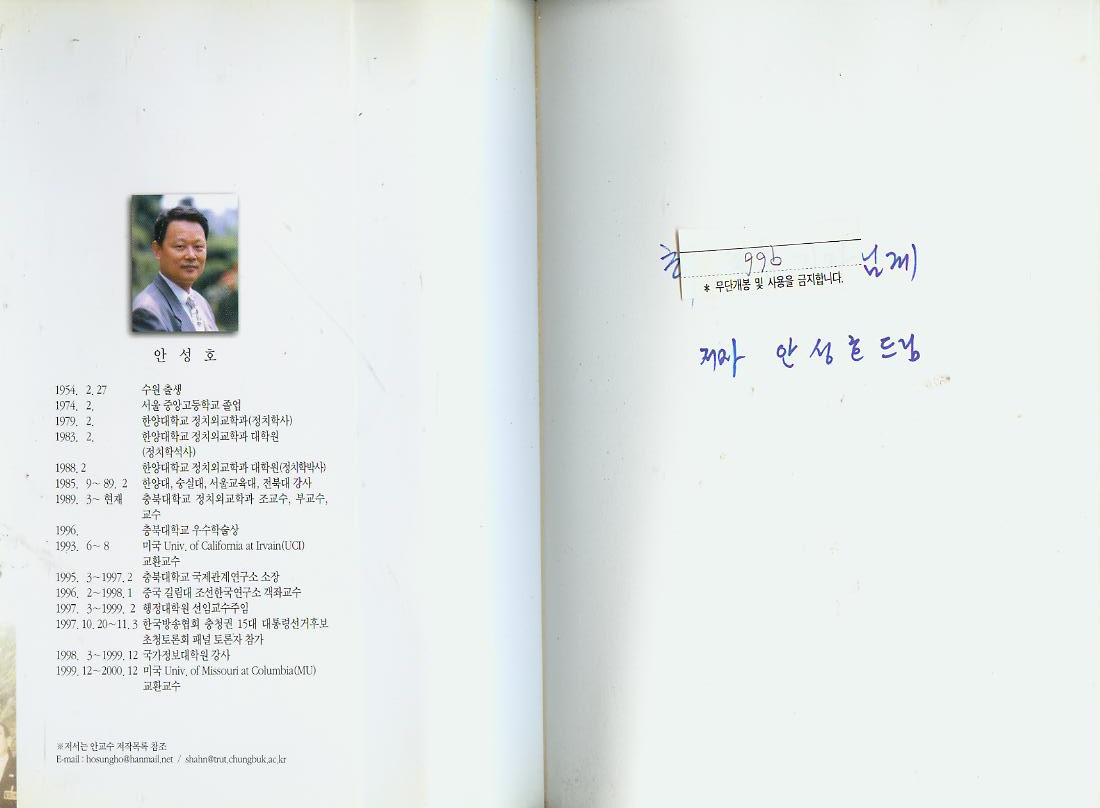 안 성 호
1954. 2. 27 수원 출생
1974. 2. 서울 중앙고등학교 졸업
1979. 2. 한양대학교 정치외교학과(정치학사)
1983. 2. 한양대학교 정치외교학과 대학원
(정치학석사)
1988. 2 한양대학교 정치외교학과 대학원(정치학박사)
1985. 9~89. 2 한양대, 숭실대, 서울교육대, 전북대 강사
1989. 3~현재 충북대학교 정치외교학과 조교수, 부교수,
교수
1996. 충북대학교 우수학술상
1993. 6~8 미국 Univ. of California at Irvain(UCI)
교환교수
1995. 3~1997. 2 충북대학교 국제관계연구소 소장
1996. 2~1998. 1 중국 길림대 조선한국연구소 객좌교수
1997. 3~1999. 2 행정대학원 선임교수주임
1997. 10. 20~11. 3 한국방송협회 충청권 15대 대통령선거후보
초청토론회 패널 토론자 참가
1998. 3~1999. 12 국가정보대학원 강사
1999. 12~2000. 12 미국 Univ. of Missouri at Columbia(MU)
교환교수
※저서는 안교수 저작목록 참조
E-mail : hosungho@hanmail.net / shahn@trut.chungbuk.ac.kr
996 님께
* 무단개봉 및 사용을 금지합니다.
저자 안성호 드림